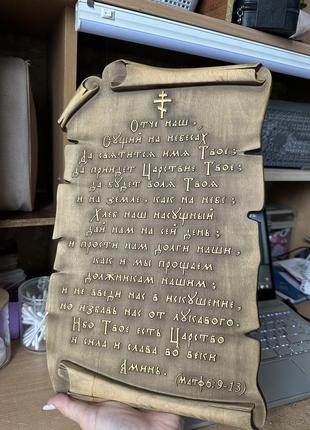 Отче наш,
Сущий на небесах
Да святится имя Твое;
Да приидет Царствие Твое;
да будет воля Твоя
и на земле, как на небе;
Хлеб наш насущный
дай нам на сей день;
и прости нам долги наши,
как и мы прощаем
должникам нашим;
и не введи нас в искушение,
но избавь нас от лукавого.
Ибо Твое есть Царство
и сила и слава во веки
Аминь.
(Матф 6; 9-13)